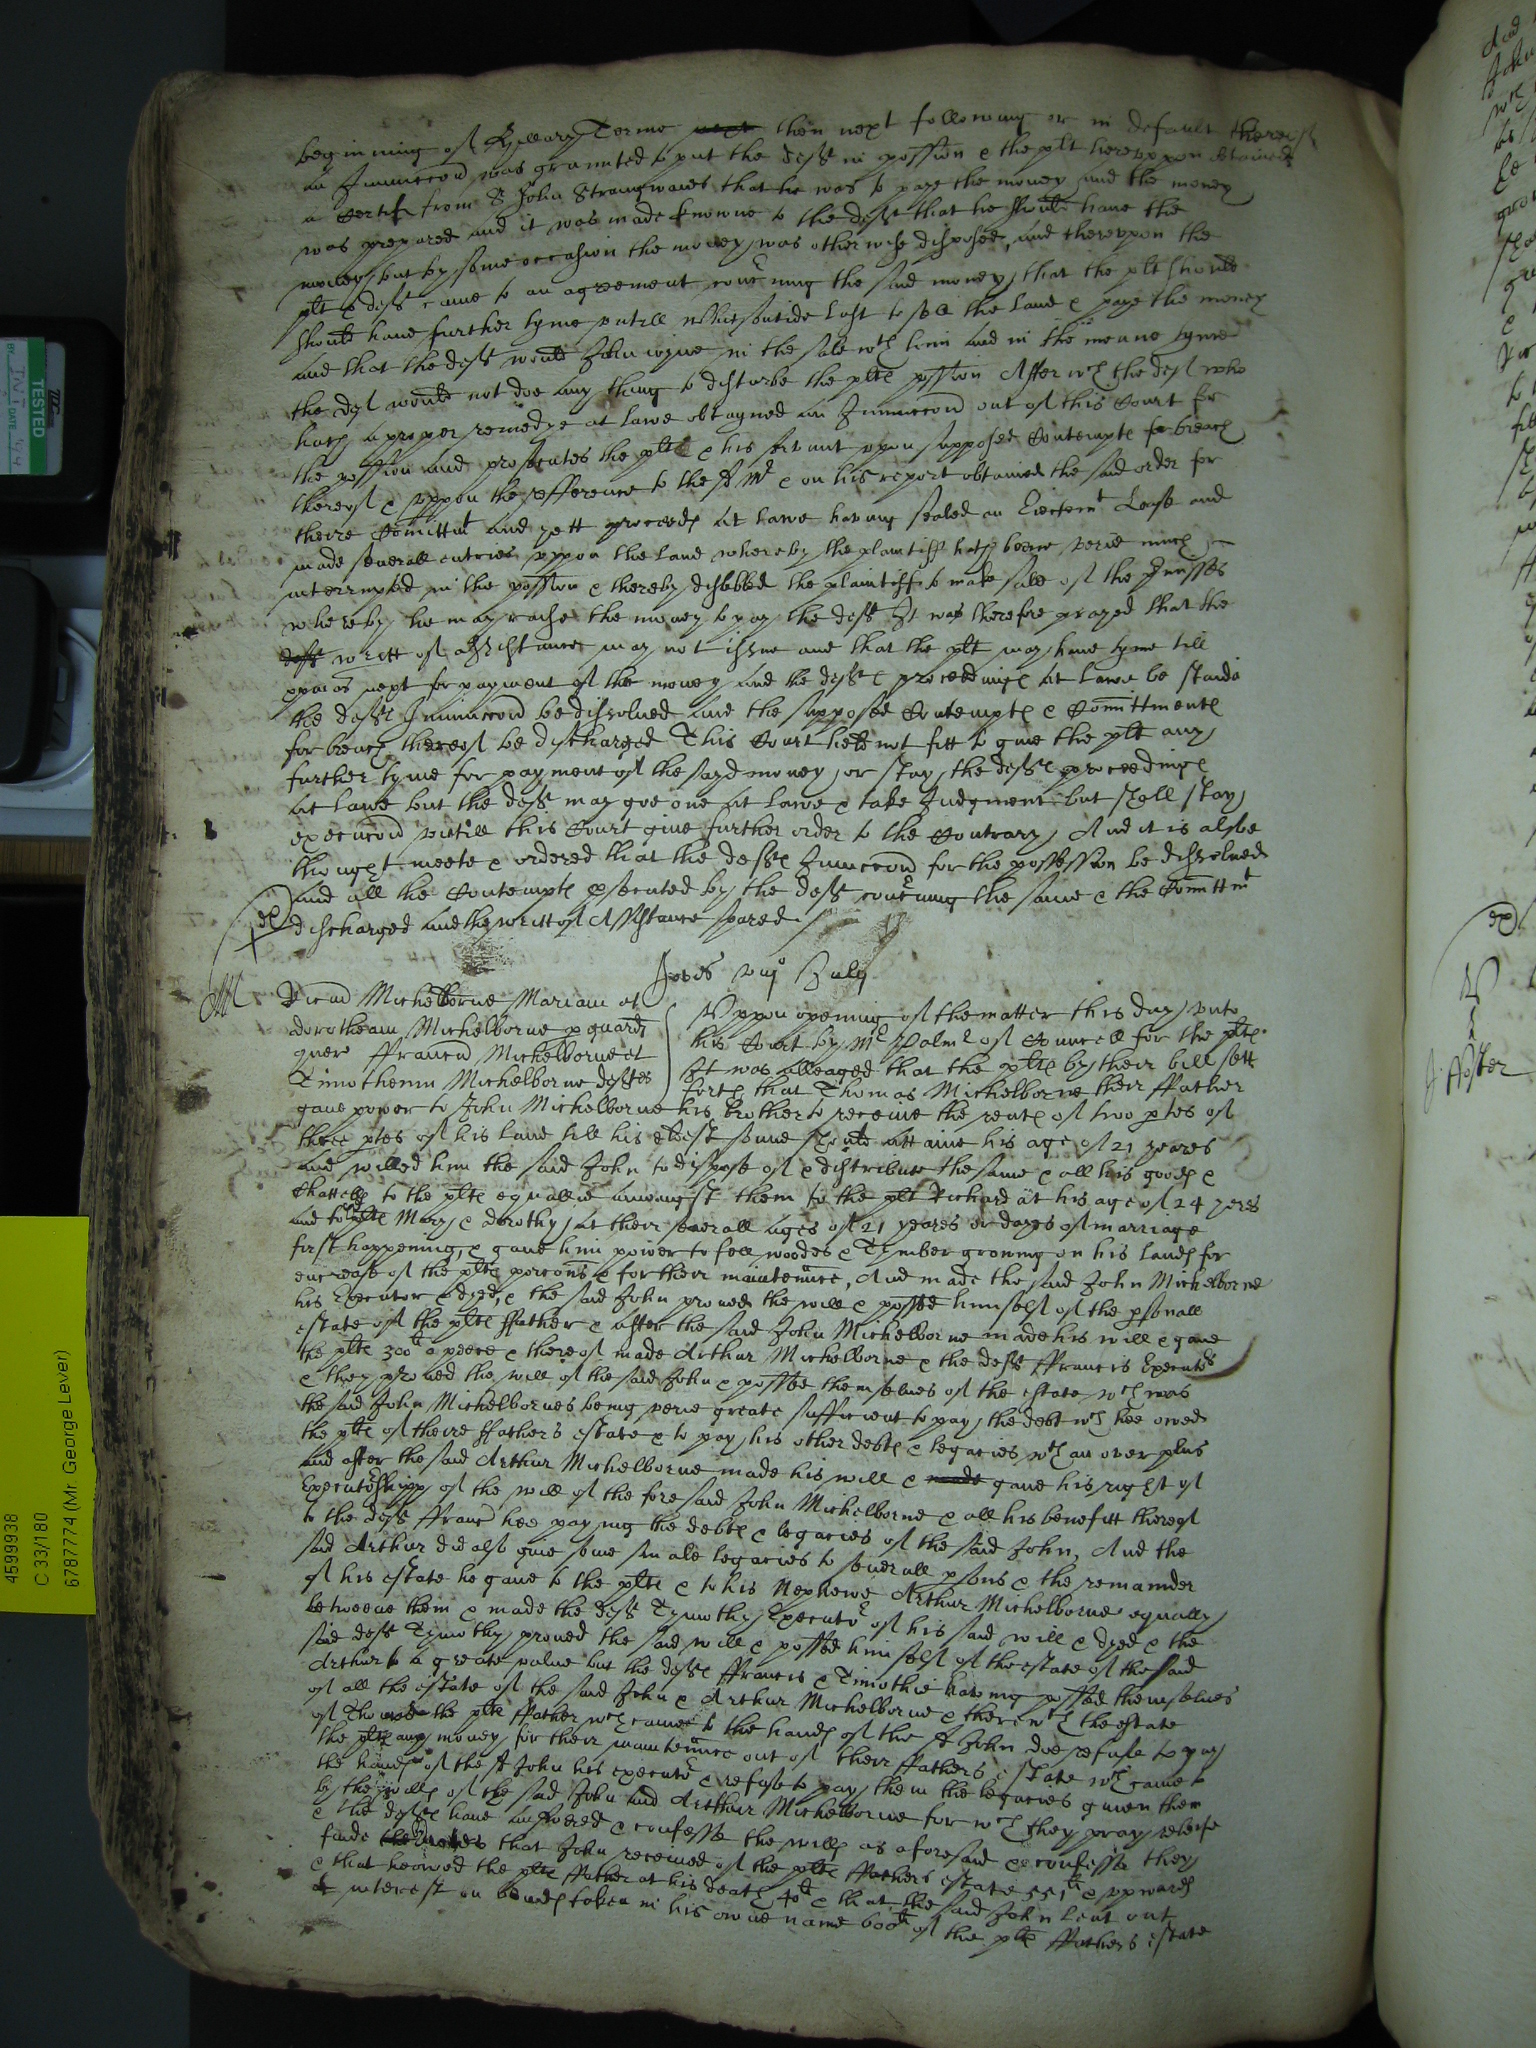 beginning of Hillary Terme next then next following or in default thereof
an Iniunccon was graunted to put the deft in possion & the plt herevppon obtained
a Certif from Sr John Strangwaies that he was to paye the money and the money
was prepared and it was made knowne to the deft that he should haue the
money but by some occasion the money was otherwise disposed, and therevpon the
plt & deft came to an agreement concning the said money, that the plt should
should haue further tyme vntill Whitsontide last to sell the land & paye the money
and that the deft would John ioyne in the sale wth him and in the meane tyme
the deft would not doe any thing to disturbe the plts possion After wch the deft who
hath a proper remedye at lawe obtayned an Iniunccon out of this Court for
the possion and prosecutes the plte & his servant vpon supposed Contempte for breach
thereof & vppon the refference to the sd Mr & on his report obtained the said order for
theire Comittmt and yett proceedes at lawe having sealed an Eiectemt Lease and
made severall entries vppon the land whereby the plaintiff hath beene verie much
interrupted in the possion & thereby disabled the plaintiff to make sale of the Premisses
whereby he may raise the money to pay the deft It was therefore prayed that the
defts writt of assistance may not issue and that the plt may haue tyme till
next for payment of the money and the defts proceedinges at lawe be staid
the defts Iniunccon be dissolued and the supposed Contempte & Comittmente
for breach thereof be discharged This Court held not fitt to giue the plt any
further tyme for payment of the sayd money, or stay the defts proceedinges
at lawe but the deft may goe one at lawe & take Iudgment but shall stay
execucon vntill this Court giue further order to the Contrary, And it is alsoe
thought meete & ordered that the defts Iniunccon for the possession be dissolued
and all the Contempte psecuted by the deft concning the same & the Comittmt
ex discharged and the writt of Assistance spared
Jovis viijo July
M Ricum Michelborne Mariam et
dorotheam Michelborne p guard
quer Francu Michelborne et
Timotheum Michelborne deftes
Vppon opening of the matter this day vnto
this Court by Mr Palmr of Councell for the plte
It was alleaged that the plte by their bill sett
forth that Thomas Michelborne their Father
gaue power to John Michelborne his brother to receiue the rente of two ptes of
three ptes of his land till his eldest sonne should attaine his age of 21 yeares
and willed him the said John to dispose of & distribute the same & all his goodes &
Chattells to the plte equallie amongst them to the plt Richard at his age of 24 yeres
and to the plte Mary & dorothy at their severall ages of 21 yeares or dayes of marriage
first happening, & gaue him power to fell woodes & Tymber growing on his landes for
encrease of the plte porcons & for their maintenance, And made the said John Michelborne
his Executor & dyed, & the said John proued the will & possed himself of the psonall
estate of the plte Father & after the said John Michelborne made his will & gaue
the plte 300li apeece & thereof made Arthur Michelborne & the deft Francis Executrs
& they proued the will of the said John & possed themselues of the estate wch was
the said John Michelbornes being verie greate sufficient to pay the debt wch hee owed
the plte of theire Fathers estate & to pay his other debte & legacies wth an over plus
and after the said Arthur Michelborne made his will & made gaue his right of
Executorshipp of the will of the foresaid John Michelborne & all his benefitt thereof
to the deft Franc hee paying the debte & legacies of the said John, And the
said Arthur did also giue some smale legacies to severall psons & the remainder
of his estate he gaue to the plte & to his Nephewe Arthur Michelborne equally
betweene them & made the deft Tymothy Executor of his said will & dyed & the
said deft Tymothy proued the said will & possed himself of the estate of the said
Arthur to a greate value but the defte Francis & Timothie having possed themselues
of all the estate of the said John & Arthur Michelborne & therewth the estate
of Thomas the plte Father wch came to the handes of the sd John doe refuse to pay
the plte any money for their maintenance out of their Fathers estate wch came to
the handes of the sd John his executor & refuse to pay them the legacies giuen them
by the willes of the said John and Arthur Michelborne for wch they pray releife
& the defte haue answered & confesse the willes as aforesaid & confesse they
finde that John received of the plte Fathers estate 551li & vpwardes
& that he owed the plte Father at his death 40li & that the said John lent out
at interest on bondes taken in his owne name 600li of the plte Fathers estate
ex
Foster
4599938
C 33/180
6787774 (Mr George Lever)
TESTED
BY INT DATE